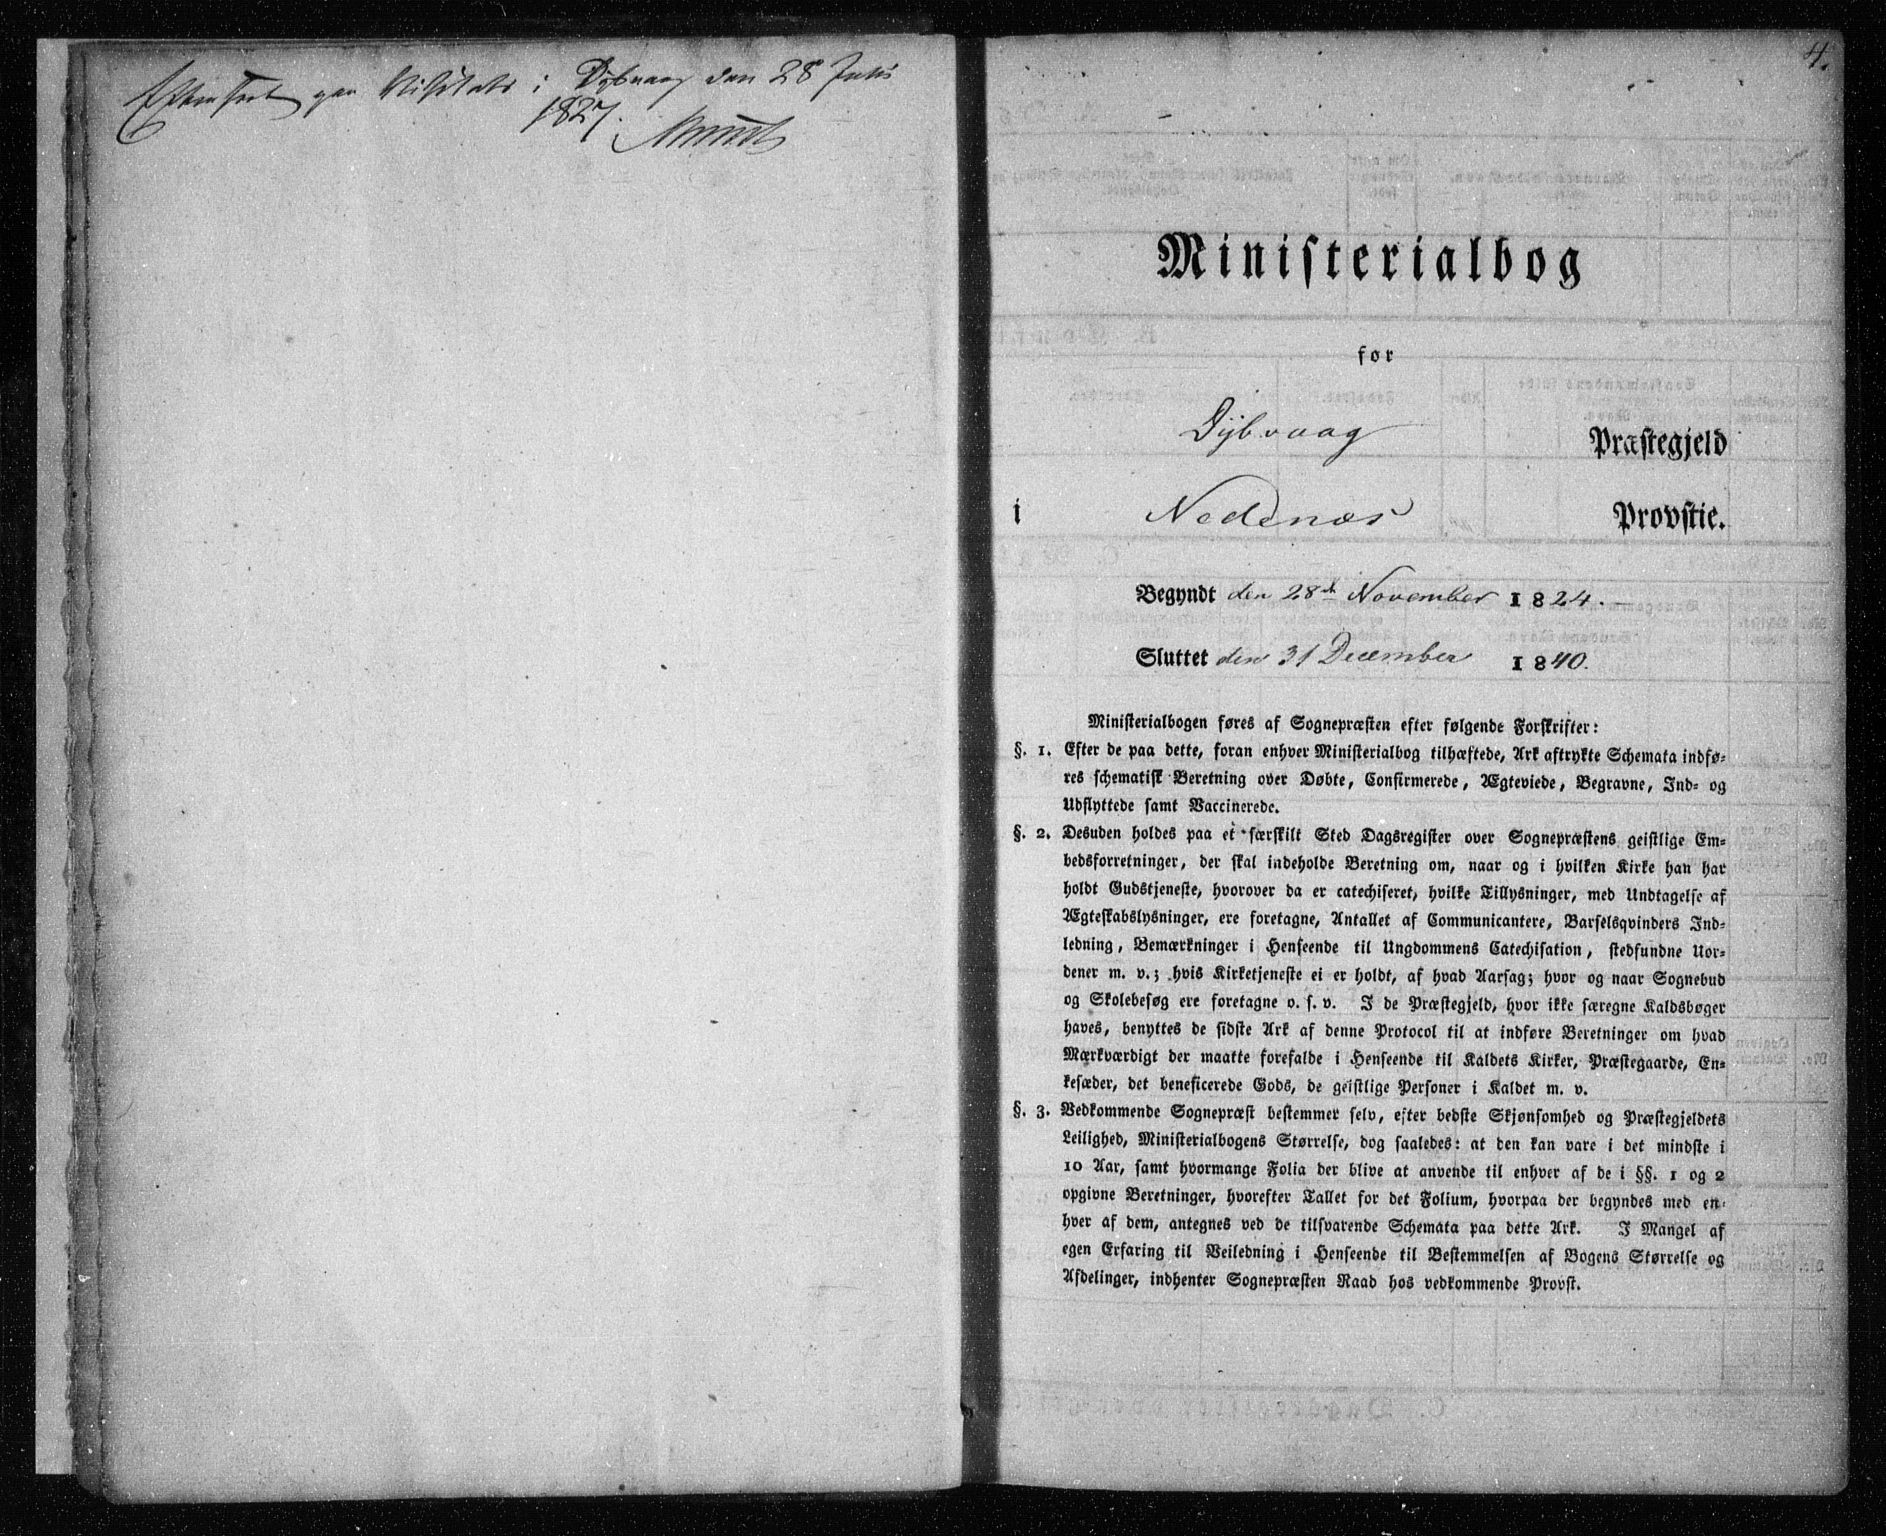 Efterseet paa Visitats i Dybvaag den 28 Julii
1827.
4.
Ministerialbog
for
Dybvaag Præstegjeld
i Nedenæs Provstie.
Begyndt den 28de November 1824.
Sluttet den 31 December 1840.
Ministerialbogen føres af Sognepræsten efter følgende Forskrifter:
§. 1. Efter de paa dette, foran enhver Ministerialbog tilhæftede, Ark aftrykte Schemata indfø-
res schematisk Beretning over Døbte, Confirmerede, Ægteviede, Begravne, Ind- og
Udflyttede samt Vaccinerede.
§. 2. Desuden holdes paa et særskilt Sted Dagsregister over Sognepræstens geistlige Em-
bedsforretninger, der skal indeholde Beretning om, naar og i hvilken Kirke han har
holdt Gudstjeneste, hvorover da er catechiseret, hvilke Tillysninger, med Undtagelse af
Ægteskabslysninger, ere foretagne, Antallet af Communicantere, Barselqvinders Ind-
ledning, Bemærkninger i Henseende til Ungdommens Catechisation, stedfundne Uor-
dener m. v.; hvis Kirketjeneste ei er holdt, af hvad Aarsag; hvor og naar Sognebud
og Skolebesøg ere foretagne o. s. v. I de Præstegjeld, hvor ikke særegne Kaldsbøger
haves, benyttes de sidste Ark af denne Protocol til at indføre Beretninger om hvad
Mærkværdigt der maatte forefalde i Henseende til Kaldets Kirker, Præstegaarde, En-
kesæder, det beneficerede Gods, de geistlige Personer i Kaldet m. v.
§. 3. Vedkommende Sognepræst bestemmer selv, efter bedste Skjønsomhed og Præstegjeldets
Leilighed, Ministerialbogens Størrelse, dog saaledes: at den kan vare i det mindste i
10 Aar, samt hvormange Folia der blive at anvende til enhver af de i §§. 1 og 2
opgivne Beretninger, hvorefter Tallet for det Folium, hvorpaa der begyndes med en-
hver af dem, antegnes ved de tilsvarende Schemata paa dette Ark. I Mangel af
egen Erfaring til Veiledning i Henseende til Bestemmelsen af Bogens Størrelse og
Afdelinger, indhenter Sognepræsten Raad hos vedkommende Provst.